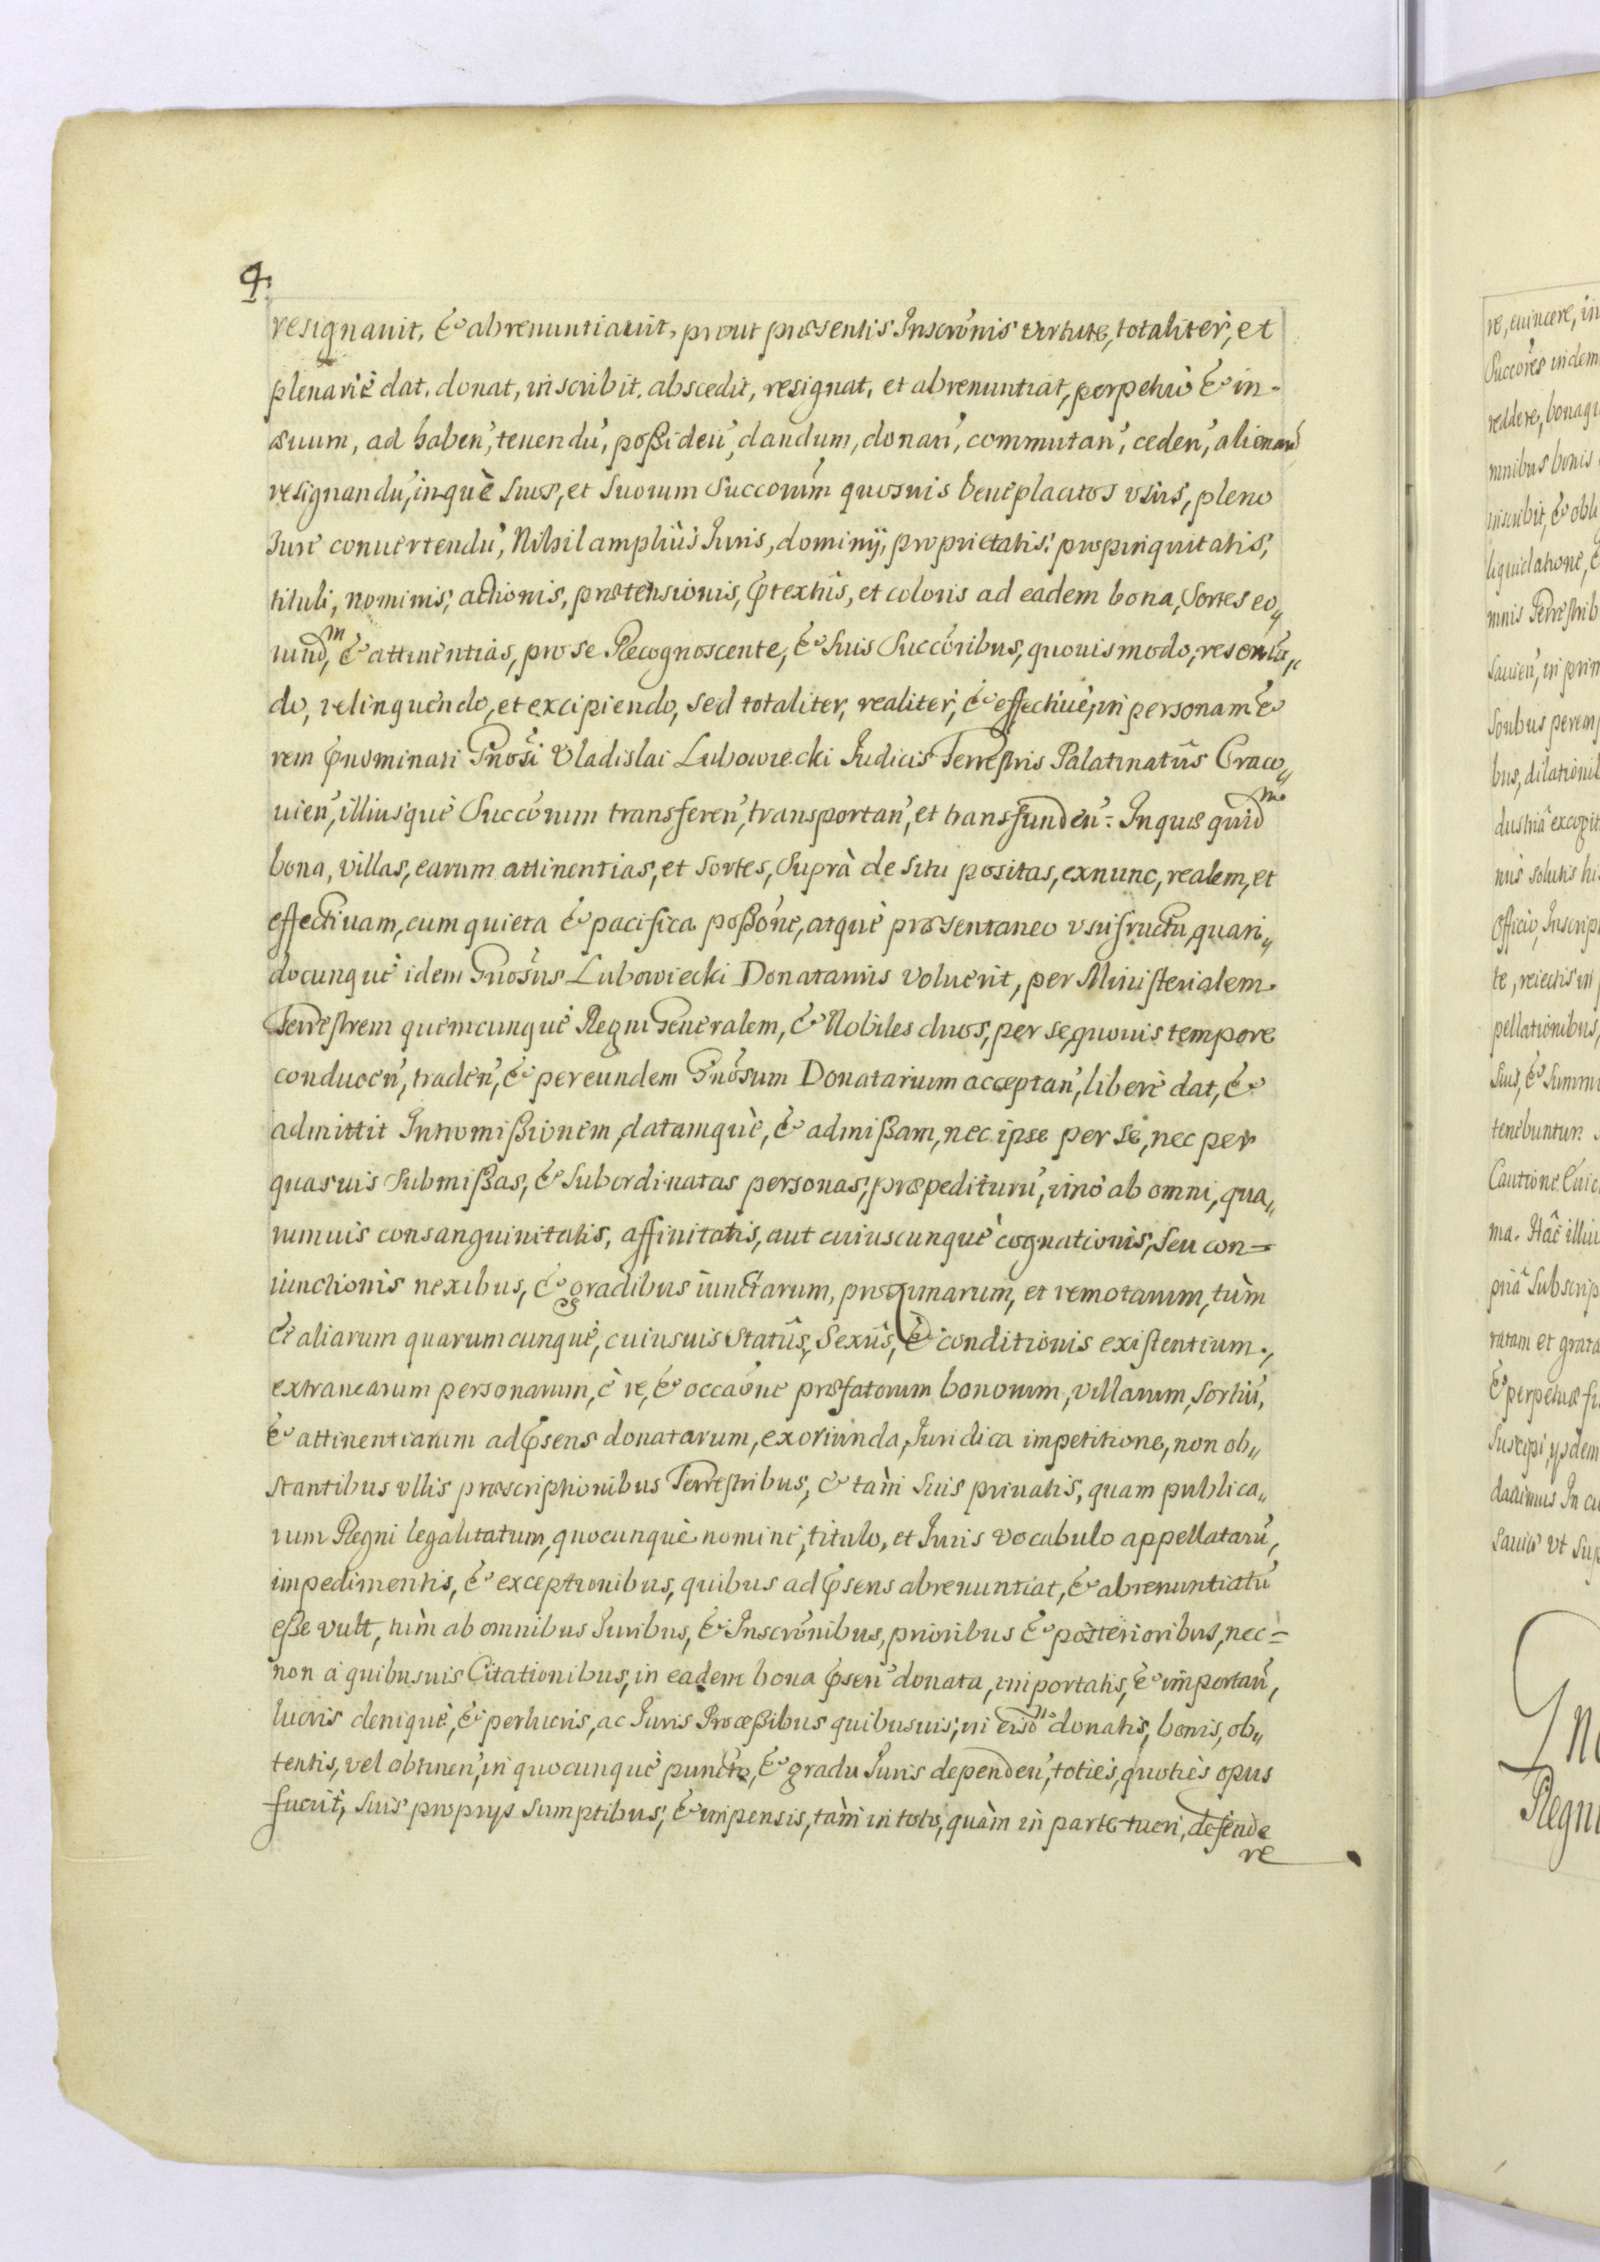 4.
resignauit, & abrenuntiauit, prout præsentis Inscrõnis virtute, totaliter, et
plenariè dat, donat, inscribit, abscedit, resignat, et abrenuntiat, perpetuò & in-
æuum, ad haben̄, tenendū, poßiden̄, dandum, donan̄, commutan̄, ceden̄, alienand̄
resignandū, inquè suos, et suorum Succorum̄ quosuis beneplacitos vsus, pleno
Jure conuertendū, Nihil ampliùs Juris, dominij, proprietatis, propinquitatis,
tituli, nominis, actionis, prætensionis, p̄textûs, et coloris ad eadem bona, Sortes eo„
rund̄m, & attinentias, pro se Recognoscente, & Suis Succōribus, quouismodo, reseruan„
do, relinquendo, et excipiendo, sed totaliter, realiter, & effectiuè, in personam &
rem p̄nominati Gn̄osi Vladislai Lubowiecki Judicis Terrestris Palatinatûs Craco„
uien̄, illiusquè Succōrum transferen̄, transportan̄, et transfunden̄. In quæ quid̄m
bona, villas, earum attinentias, et sortes, Suprà de situ positas, exnunc, realem, et
effectiuam, cum quieta & pacifica poßōne, atquè præsentaneo vsufructu, quan„
docunquè idem Gn̄osus Lubowiecki Donatarius voluerit, per Ministerialem
Terrestrem quemcunquè Regni Generalem, & Nobiles duos, per se, quouis tempore
conducen̄, traden̄, & per eundem Gn̄osum Donatarium acceptan̄, liberè dat, &
admittit Intromißionem, datamquè, & admißam, nec ipse per se, nec per
quasuis Submißas, & Subordinatas personas, præpediturū, imò ab omni, qua„
rumuis consanguinitatis, affinitatis, aut cuiuscunquè cognationis, seu con=
iunctionis nexibus, & gradibus iunctarum, proximarum, et remotarum, tùm
& aliarum quarumcunquè, cuiusuis Statûs, Sexûs, & conditionis existentium,
extranearum personarum, è re, & occaōne præfatorum bonorum, villarum, Sortiū,
& attinentiarum ad p̄sens donatarum, exoriunda, Juridica impetitione, non ob„
stantibus vllis præscriptionibus Terrestribus, & tàm Suis priuatis, quam publica„
rum Regni legalitatum, quocunquè nomine, titulo, et Juris vocabulo appellatarū,
impedimentis, & exceptionibus, quibus ad p̄sens abrenuntiat, & abrenuntiatū
eße vult, tùm ab omnibus Juribus, & Inscrōnibus, prioribus & posterioribus, nec=
non à quibusuis Citationibus, in eadem bona p̄sen̄ donata, importatis, & importan̄,
lucris deniquè, & perlucris, ac Juris Proceßibus quibusuis, in eisd̄m donatis, bonis, ob„
tentis, vel obtinen̄, in quocunquè puncto, & gradu Juris dependen̄, toties, quotiès opus
fuerit, suis proprijs sumptibus, & impensis, tàm in toto, quàm in parte tueri, defende
re